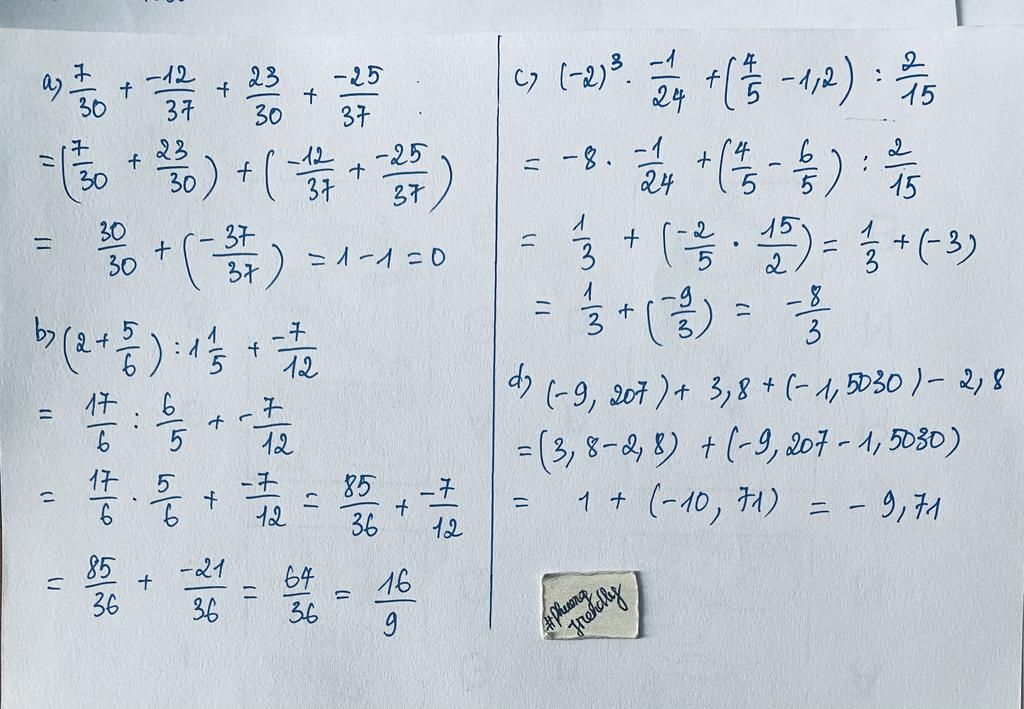 a) 7/30 + -12/37 + 23/30 + -25/37
= (7/30 + 23/30) + (-12/37 + -25/37)
= 30/30 + (-37/37) = 1 - 1 = 0
b) (2 + 5/6) : 1 1/5 + -7/12
= 17/6 : 6/5 + -7/12
= 17/6 . 5/6 + -7/12 = 85/36 + -7/12
= 85/36 + -21/36 = 64/36 = 16/9
c) (-2)³ . -1/24 + (4/5 - 1,2) : 2/15
= -8 . -1/24 + (4/5 - 6/5) : 2/15
= 1/3 + (-2/5 . 15/2) = 1/3 + (-3)
= 1/3 + (-9/3) = -8/3
d) (-9, 207) + 3,8 + (-1, 5030) - 2,8
= (3, 8 - 2, 8) + (-9, 207 - 1, 5030)
= 1 + (-10, 71) = - 9,71
#phuong
friendly